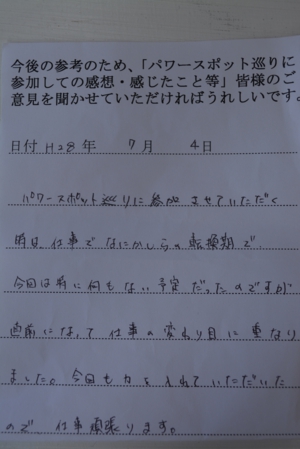 今後の参考のため、「パワースポット巡りに
参加しての感想・感じたこと等」皆様のご
意見を聞かせていただければうれしいです。
日付 H28 年 7 月 4 日
パワースポット巡りに参加させていただく
時は、仕事でなにかしらの転換期で、
今回は特に何もない予定だったのですが
直前になって仕事の変わり目に重なり
ました。今回も力を入れていただいた
ので、仕事頑張ります。